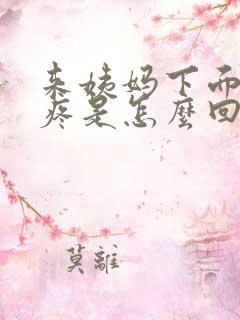 来姨妈下面
疼是怎麼回
莫離